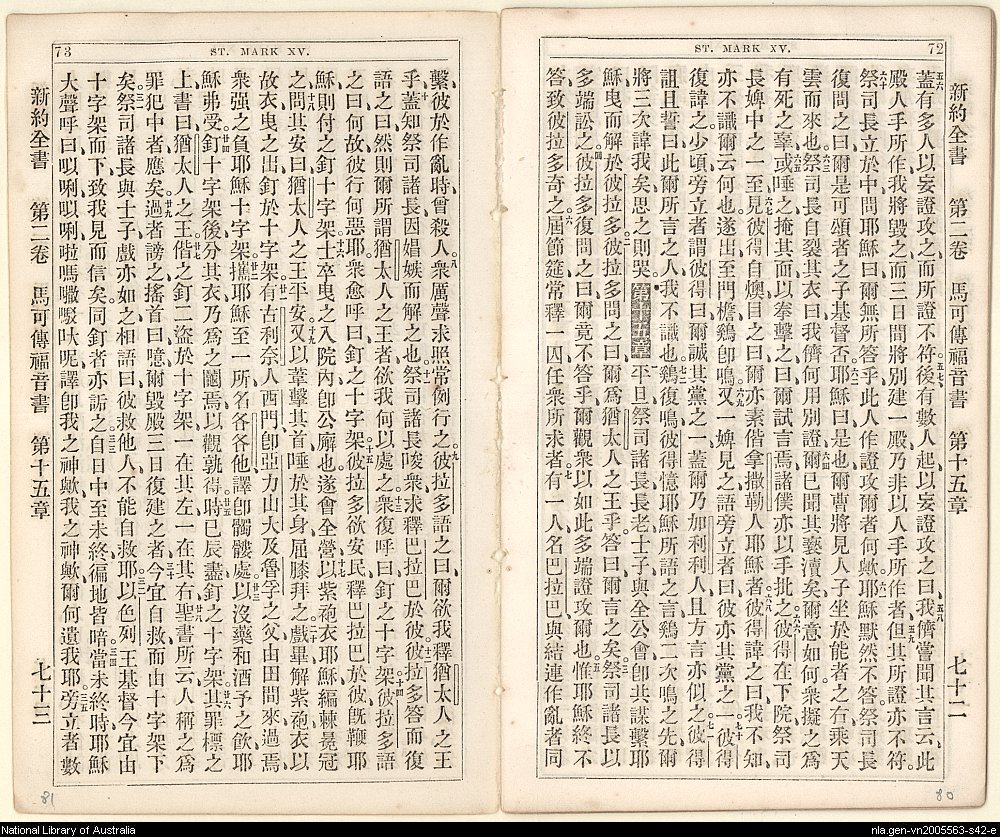 ST. MARK XV.
72
新約全書 第二卷 馬可傳福音書 第十五章 七十二
蓋有多人以妄證攻之而所證不符後有數人起以妄證攻之曰我儕嘗聞其言云此
殿人手所作我將毀之而三日間將別建一殿乃非以人手所作者但其所證亦不符
祭司長立於中問耶穌曰爾無所答乎此人作證攻爾者何歟耶穌默然不答祭司長
復問之曰爾是可頌者之子基督否耶穌曰是也爾曹將見人子坐於能者之右乘天
雲而來也祭司長自裂其衣曰我儕何用別證爾已聞其褻瀆矣爾意如何衆擬之爲
有死之辠或唾之掩其面以拳擊之曰爾試言焉諸僕亦以手批之彼得在下院祭司
長婢中之一至見彼得自燠目之曰爾亦素偕拿撒勒人耶穌者彼得諱之曰我不知
亦不識爾云何也遂出至門檐鷄卽鳴又一婢見之語旁立者曰彼亦其黨之一彼得
復諱之少頃旁立者謂彼得曰爾誠其黨之一蓋爾乃加利利人且方言亦似之彼得
詛且誓曰此爾所言之人我不識也鷄復鳴彼得憶耶穌所語之言鷄二次鳴之先爾
將三次諱我矣思之則哭 第十五章 平旦祭司諸長長老士子與全公會卽共謀繫耶
穌曳而解於彼拉多彼拉多問之曰爾爲猶太人之王乎答曰爾言之矣祭司諸長以
多端訟之彼拉多復問之曰爾竟不答乎爾觀衆以如此多端證攻爾也惟耶穌終不
答致彼拉多奇之屆節筵常釋一囚任衆所求者有一人名巴拉巴與結連作亂者同
ST. MARK XV.
73
繫彼於作亂時曾殺人衆厲聲求照常例行之彼拉多語之曰爾欲我釋猶太人之王
乎蓋知祭司諸長因娼嫉而解之也祭司諸長唆衆求釋巴拉巴於彼彼拉多答而復
語之曰然則爾所謂猶太人之王者欲我何以處之衆復呼曰釘之十字架彼拉多語
之曰何故彼行何惡耶衆愈呼曰釘之十字架彼拉多欲安民釋巴拉巴於彼旣鞭耶
穌則付之釘十字架士卒曳之入院內卽公廨也遂會全營以紫袍衣耶穌編棘冕冠
之問其安曰猶太人之王平安又以葦擊其首唾於其身屈膝拜之戲畢解紫袍衣以
故衣曳之出釘於十字架有古利奈人西門卽亞力山大及魯孚之父由田間來過焉
衆强之負耶穌十字架攜耶穌至一所名各各他譯卽髑髏處以沒藥和酒予之飲耶
穌弗受釘十字架後分其衣乃爲之鬮焉以觀孰得時已辰盡釘之十字架其罪標之
上書曰猶太人之王偕之釘二盜於十字架一在其左一在其右聖書所云人稱之爲
罪犯中者應矣過者謗之搖首曰噫爾毀殿三日復建之者今宜自救而由十字架下
矣祭司諸長與士子戲亦如之相語曰彼救他人不能自救耶以色列王基督今宜由
十字架而下致我見而信矣同釘者亦詬之自日中至未終徧地皆暗當未終時耶穌
大聲呼曰㕥唎㕥唎啦嗎撒㕭呔呢譯卽我之神歟我之神歟爾何遺我耶旁立者數
新約全書 第二卷 馬可傳福音書 第十五章 七十三
81
80
National Library of Australia
nla.gen-vn2005563-s42-e